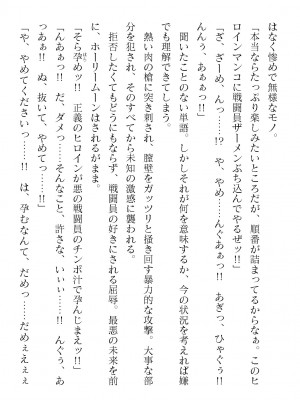 はなく惨めで無様なモノ。
「本当ならたっぷり楽しみたいところだが、順番が詰まってるからな。このヒ
ロインマンコに戦闘員ザーメンぶち込んでやるぜッ!!」
「ざ、ざーめ、んっ……!?　や、やめ……んぐあぁっ!!　あぎっ、ひゃぐぅっ!!
んんぅ、あぁぁっ!!」
聞いたことのない単語。しかしそれが何を意味するか、今の状況を考えれば嫌
でも理解できてしまう。
熱い肉の槍に突き刺され、膣壁をガッツリと掻き回す暴力的な攻撃。大事な部
分を犯され、そのすべてから未知の激感に襲われる。
拒否したくてもどうにもならず、戦闘員の好きにされる屈辱。最悪の未来を前
に、ホーリームーンはされるがまま。
「そら孕めッ!!　正義のヒロインが悪の戦闘員のチンポ汁で孕んじまえッ!!」
「んあぁっ!!　だ、ダメっ……そんなこと、許さな、いぃぃ……!!　んぐぅ、あ
っあぁ!!　ぬ、抜いて、やめてっ……!!」
「や、やめてくださいっ……!!　は、孕むなんて、だめっ……だめぇぇぇ